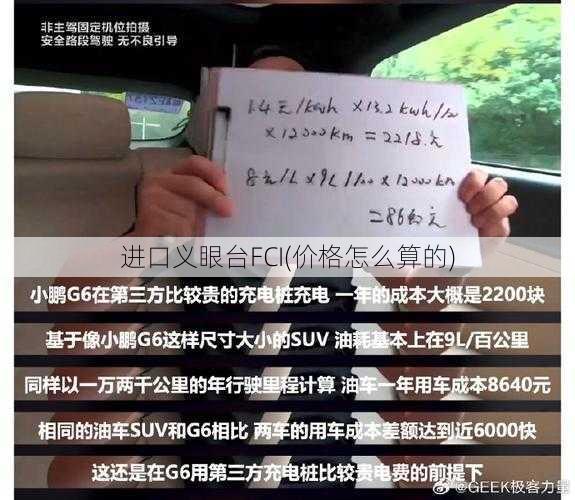 非主驾固定机位拍摄
安全路段驾驶 无不良引导
1.4元/kwh ×13.2kwh/100
×12000km=2218元
8元/L×9L/100×12000km
=8640元
进口义眼台FCI(价格怎么算的)
小鹏G6在第三方比较贵的充电桩充电 一年的成本大概是2200块
基于像小鹏G6这样尺寸大小的SUV 油耗基本上在9L/百公里
同样以一万两千公里的年行驶里程计算 油车一年用车成本8640元
相同的油车SUV和G6相比 两车的用车成本差额达到近6000快
这还是在G6用第三方充电桩比较贵电费的前提下
@GEEK极客力量